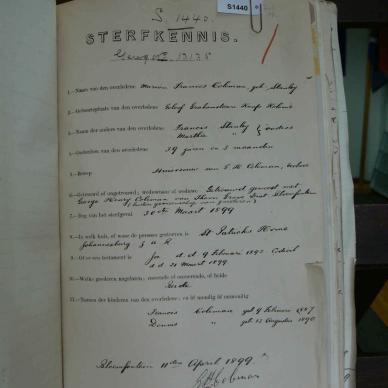 S. 1440.
S1440
STERFKENNIS.
13135
1.—Naam van den overledene: Marion Frances Coleman, geb. Stanley
2.—Geboorteplaats van den overledene: Graaf Kaap Kolonie
3.—Naam der ouders van den overledene: Francis Stanley ouders
Martha
4.—Ouderdom van den overledene: 39 jaren en 2 maanden
5.—Beroep G. H. Coleman,
6.—Getrouwd of ongetrouwd; weduwnaar of weduwe: Getrouwd geweest met
George Henry Coleman van Bloemfontein
7.—Dag van het sterfgeval 30ste Maart 1899
8.—In welk huis, of waar de persoon gestorven is St Patricks Home
Johannesburg Z A R
9.—Of er een testament is Ja d.d. 9 Februari Codicil
d.d. 21 Maart 1899
10.—Welke goederen nagelaten; roerende of onroerende, of beide
Beide
11.—Namen der kinderen van den overledene; en of mondig of onmondig
Francis Coleman geb 9 Februari 1887
Dennis " geb 13 Augustus 1890
Bloemfontein 11den April 1899
G H Coleman